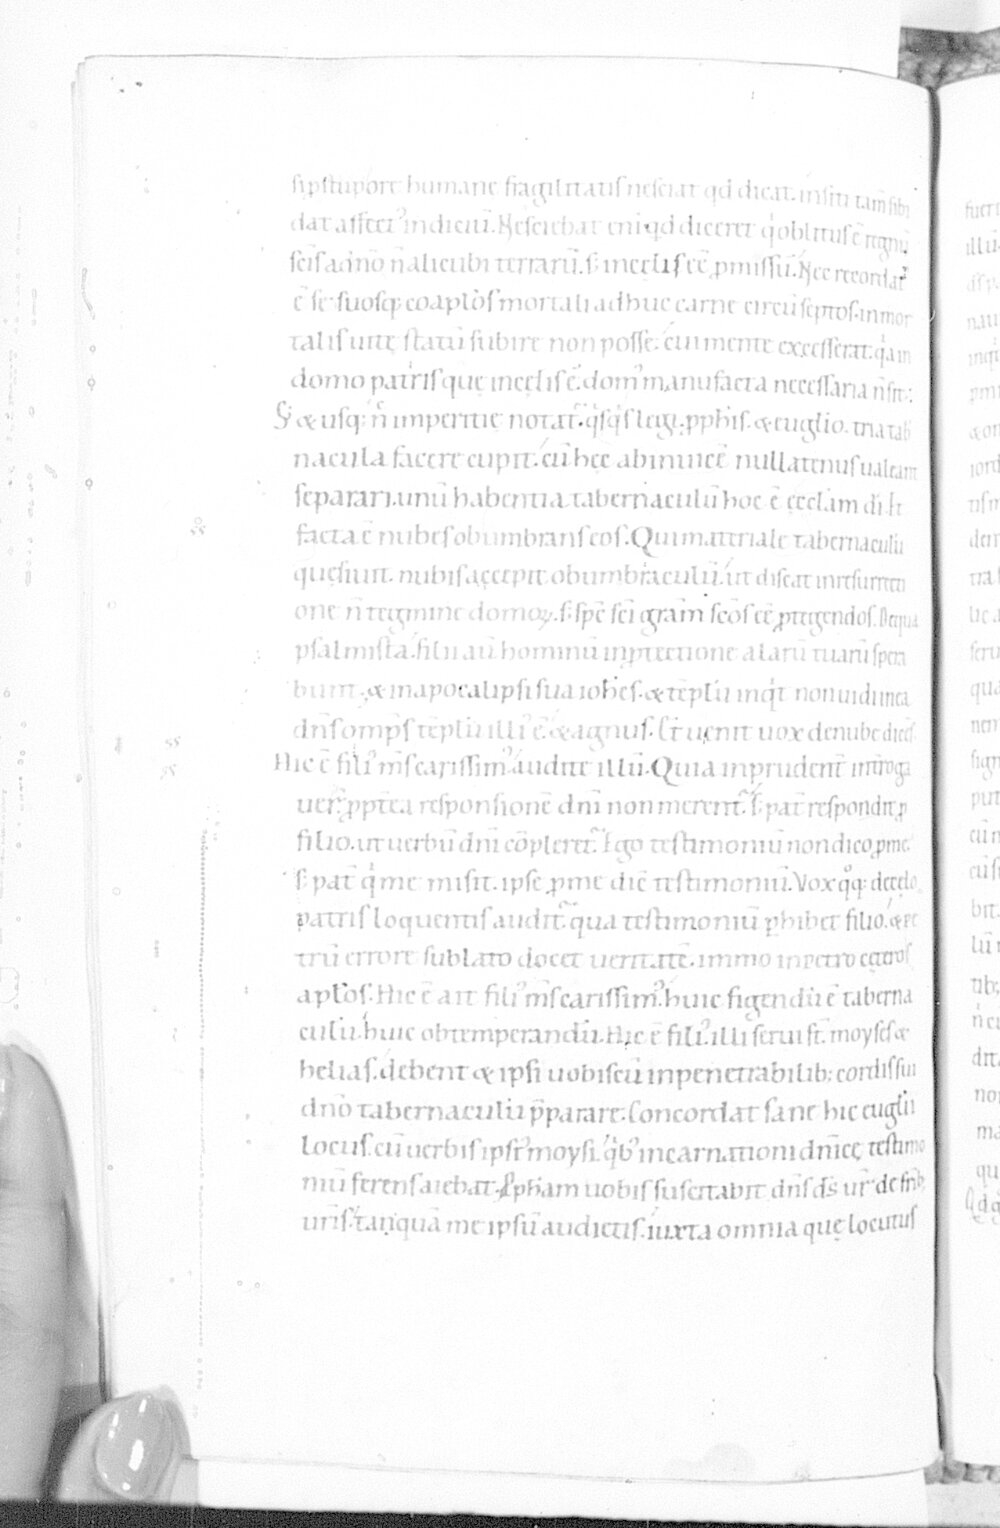 sip stupore humanę fragilitatis nesciat qd dicat. insiti tam̄ sibi
dat affect᾽ indiciū. Nesciebat eni qd diceret q oblitus ē regnū
scis a dn̄o n̄ alicubi terrarū. s; in cęlis eē ꝓmissū. Nec recordat᾽
ē se suosq; coaplos mortali adhuc carne circū septos. inmor
talis uitę statū subire non posse. cui mente excesserat. qa in
domo patris quę in cęlis ē. dom᾽ manu facta necessaria n̄ sit.
S; & usq; n̄ imperitię notat᾽. qs qs legi. pphis. & euglio. tria tab
nacula facere cupit. cū hęc ab inuicē nullatenus ualeant
separari. unū habentia tabernaculū hoc ē ęccłam di. Et
facta ē nubes obumbrans eos. Qui materiale tabernaculū
quęsiuit. nubis accepit obumbraculū. ut discat in resurrecti
one n̄ tegmine domoꝝ. s; spē sci gram scos eē ꝓtegendos. De qua
psalmista. filii aū hominū in ꝓtectione alarū tuarū spera
bunt. & in apocalipsi sua iohes. & tēplū inqt non uidi in ea
dns omps tēplū illi᾽ ē & agnus. Et uenit uox de nube dicēs.
Hic ē fili᾽ ms carissim᾽. audite illū. Quia inprudent᾽ int̄roga
uer̄. ꝓptea responsionē dni non merent᾽. s; pat᾽ respondit ꝓ
filio. ut uerbū dni cōpleret᾽. Ego testimoniū non dico ꝓ me.
s; pat᾽ q me misit. ipse ꝓ me dic̄ testimoniū. Vox qoq; de cęlo
patris loquentis audit᾽. qua testimoniū phibet filio. & pe
trū errore sublato docet ueritatē. immo in petro cęteros
aplos. Hic ē ait fili᾽ ms carissim᾽. huic figendū ē taberna
culū. huic obtemperandū. Hic ē fili᾽. illi serui st̄. moyses &
helias. debent & ipsi uobiscū in penetrabilib; cordis sui
dn̄o tabernaculū p̄parare. Concordat sane hic euglii
locus. cū uerbis ipsi᾽ moysi. qb᾽ incarnationi dn̄icę testimo
niū ferens aiebat. Ppham uobis suscitabit dn̄s ds̄ ur̄ de frib
uris. tanquā me ipsū audietis. iuxta omnia quę locutus